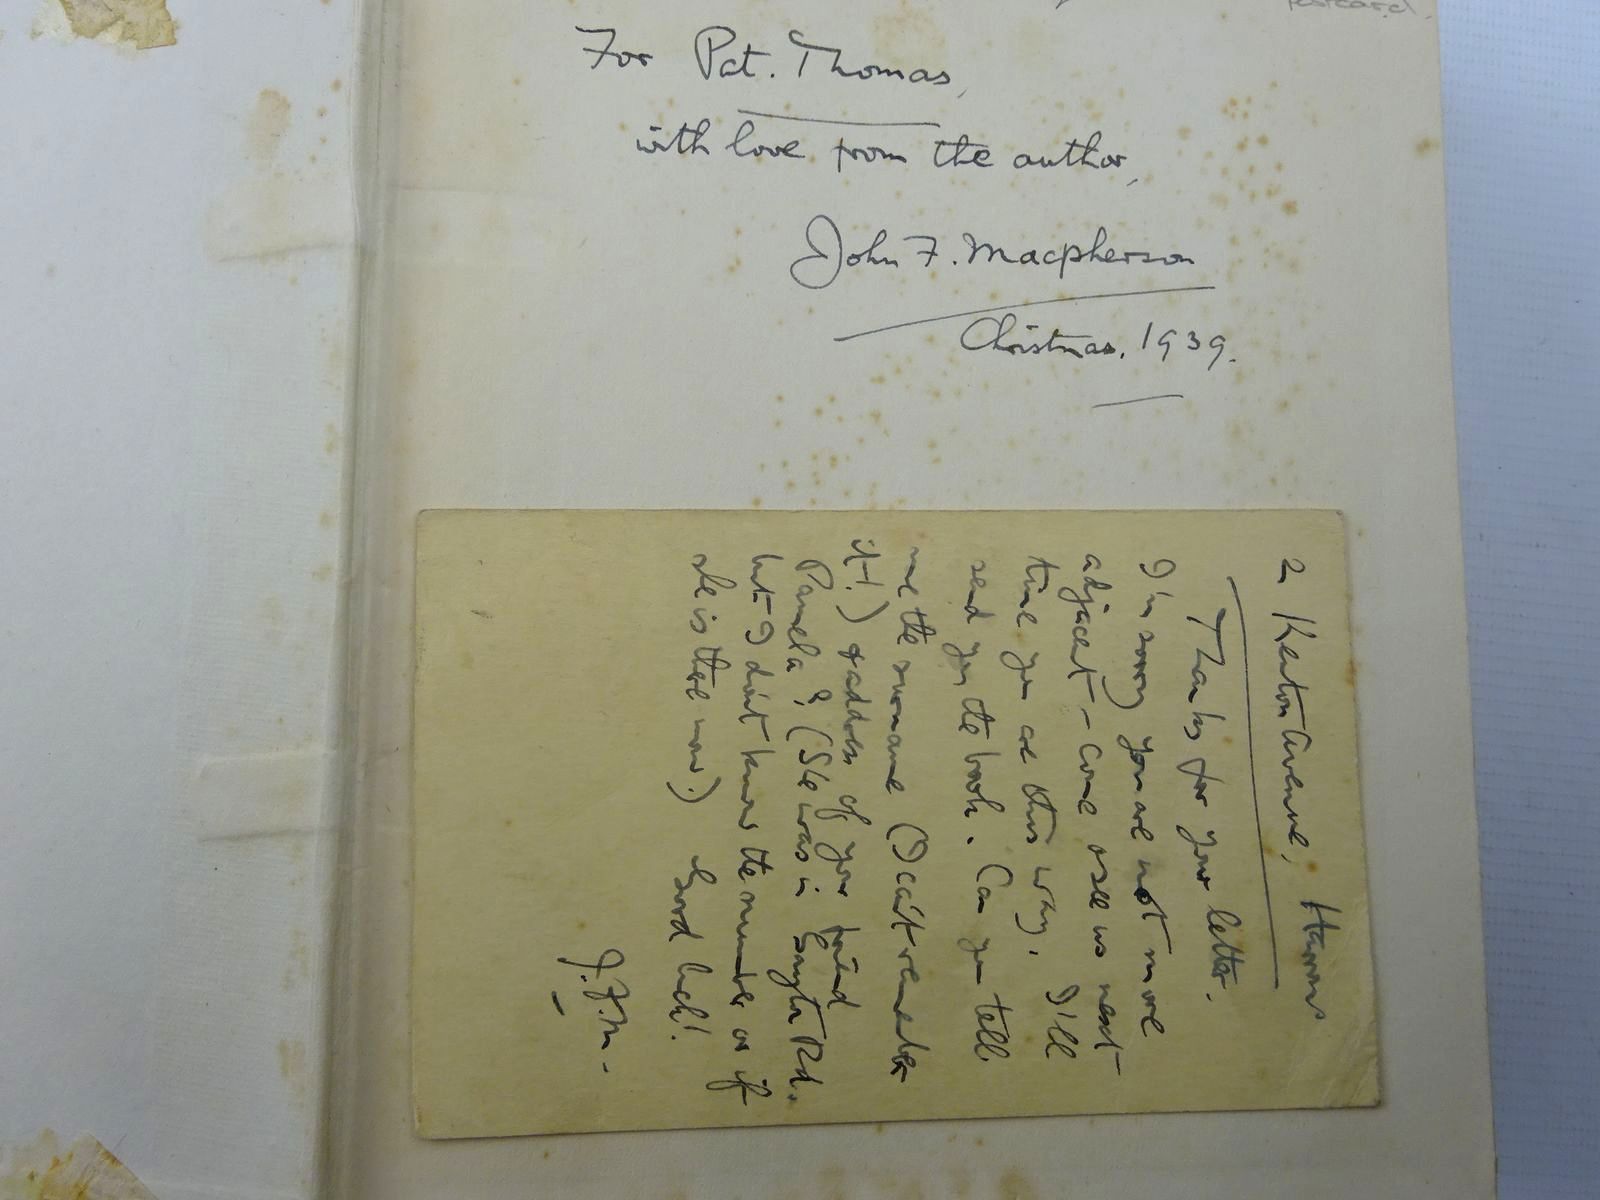 postcard.
For Pat. Thomas,
with love from the author,
John F. Macpherson
Christmas, 1939.
2 Kenton Avenue, Harrow
Thanks for your letter.
I'm sorry you are not more
adjacent – come & see us next
time you are this way. I'll
send you the book. Can you tell
me the surname (I can't remember
it!) & address of your friend
Pamela? (She was in Gayton Rd.
but I don't know the number or if
she is there now.) Good luck!
J.F.M.